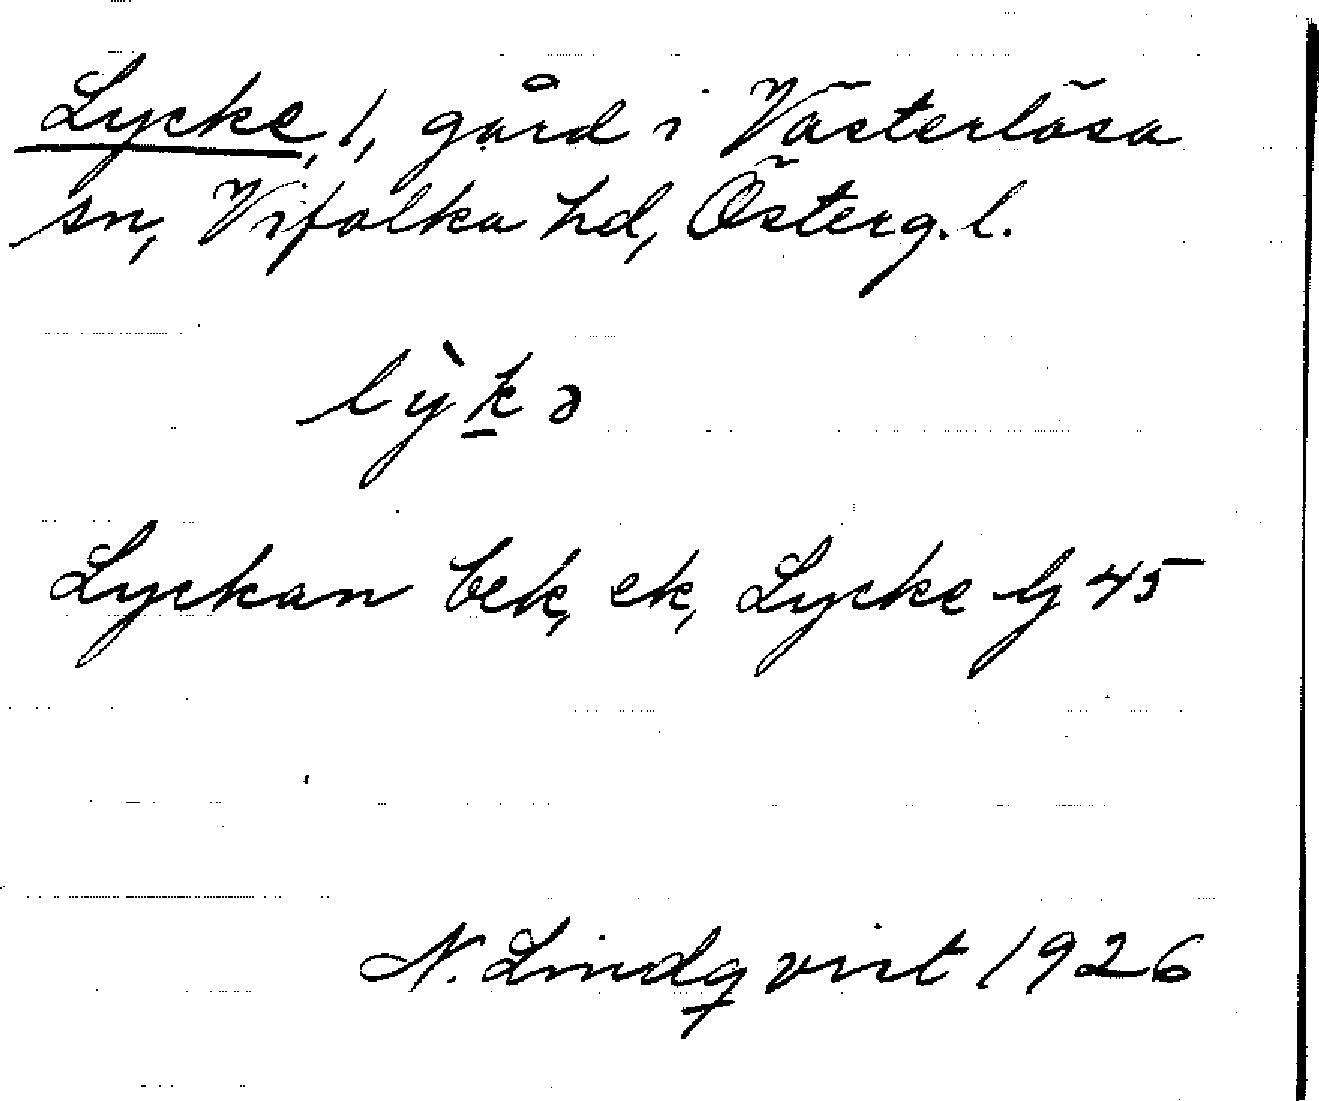 Lycke, 1, gård i Västerlösa
sn, Vifolka hd, Österg. l.
lỳk̲ə
Lyckan bek, ek, Lycke Gj 45
N. Lindqvist 1926